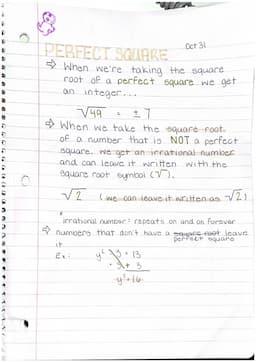 Oct 31
PERFECT SQUARE
⇒ When we're taking the square
root of a perfect square we get
an integer...
√49 = ± 7
⇒ When we take the square root
of a number that is NOT a perfect
square, we get an irrational number
and can leave it written with the
square root symbol (√).
√2 (we can leave it written as √2)
*irrational number: repeats on and on forever
⇒ numbers that don't have a square root leave
perfect square
it
Ex: y² = 13
y² = 16